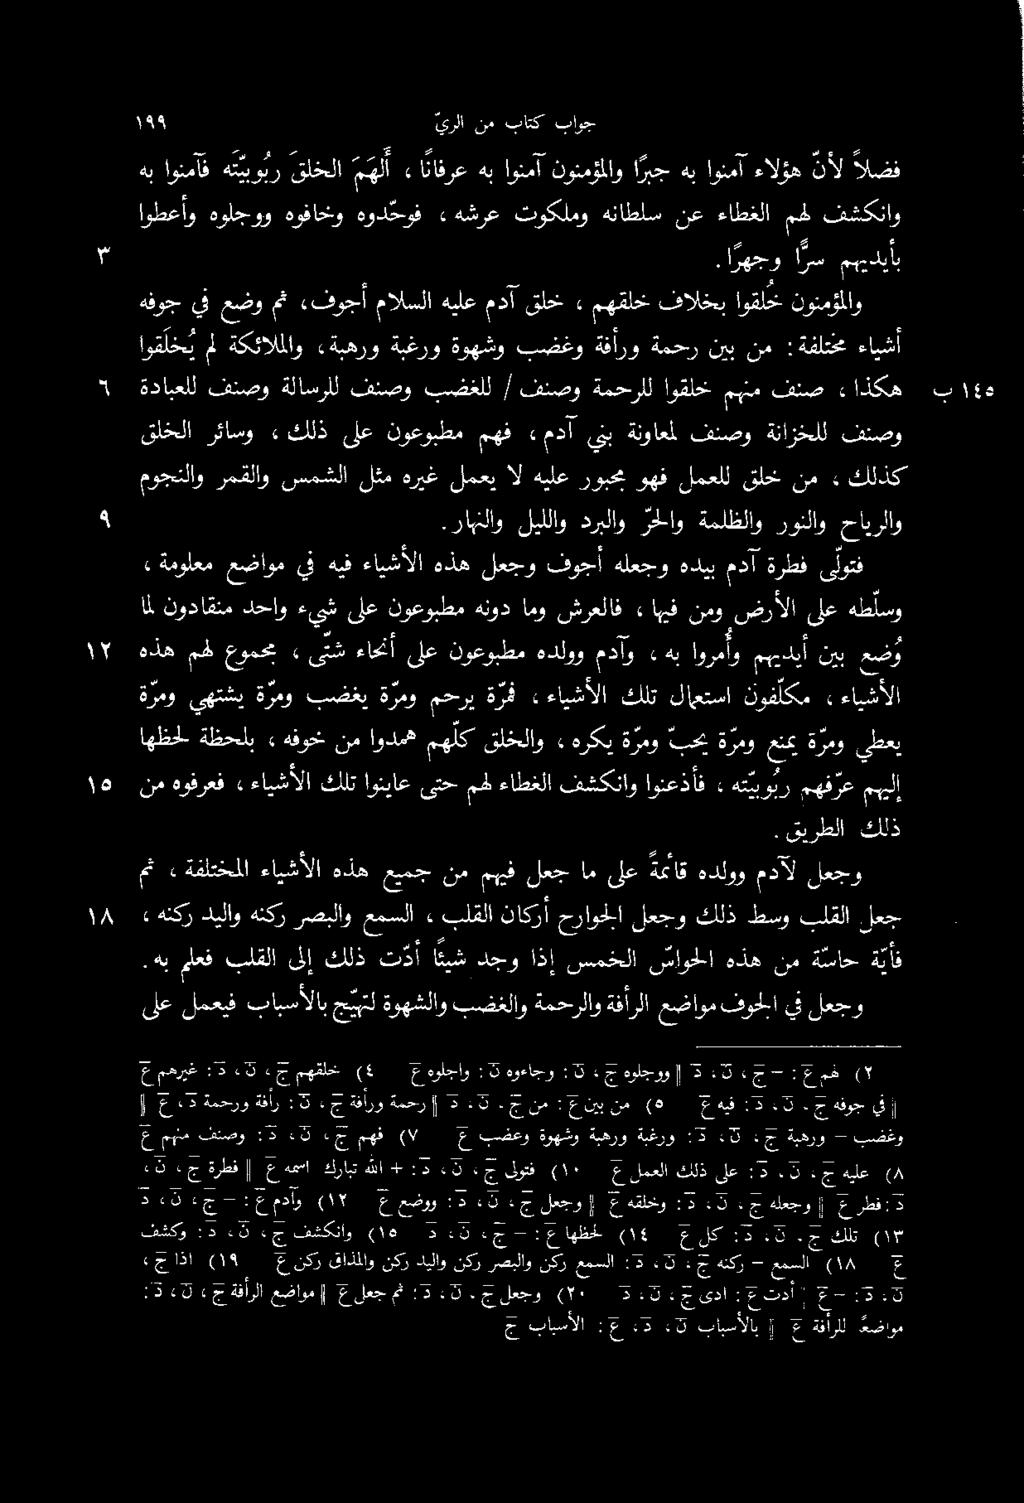 جواب كتاب من الريّ ١٩٩
فضلاً لأنّ هؤلاء آمنوا به جبرًا والمؤمنون آمنوا به عرفانًا ، أَلهَمَ الخلقَ ربُوبيّتَه فآمنوا به
وانكشف لهم الغطاء عن سلطانه وملكوت عرشه ، فوحّدوه وخافوه ووجلوه وأعطوا
بأيديهم سرًّا وجهرًا . ٣
والمؤمنون خُلقوا بخلاف خلقهم ، خلق آدم عليه السلام أجوف ، ثم وضع في جوفه
أشياء مختلفة : من بين رحمة ورأفة وغضب وشهوة ورغبة ورهبة ، والملائكة لم يُخلَقوا
١٤٥ ب هكذا ، صنف منهم خلقوا للرحمة وصنف / للغضب وصنف للرسالة وصنف للعبادة ٦
وصنف للخزانة وصنف لمعاونة بني آدم ، فهم مطبوعون على ذلك ، وسائر الخلق
كذلك ، من خلق للعمل فهو مجبور عليه لا يعمل غيره مثل الشمس والقمر والنجوم
والرياح والنور والظلمة والحرّ والبرد والليل والنهار . ٩
فتولّى فطرة آدم بيده وجعله أجوف وجعل هذه الأشياء فيه في مواضع معلومة ،
وسلّطه على الأرض ومن فيها ، فالعرش وما دونه مطبوعون على شيء واحد منقادون لما
وُضع بين أيديهم وأُمروا به ، وآدم وولده مطبوعون على أنحاء شتّى ، مجموع لهم هذه ١٢
الأشياء ، مكلّفون استعمال تلك الأشياء ، فمرّة يرحم ومرّة يغضب ومرّة يشتهي ومرّة
يعطي ومرّة يمنع ومرّة يحبّ ومرّة يكره ، والخلق كلّهم همدوا من خوفه ، بلحظة لحظها
إليهم عرّفهم ربُوبيّته ، فأذعنوا وانكشف الغطاء لهم حتى عاينوا تلك الأشياء ، فعرفوه من ١٥
ذلك الطريق .
وجعل لآدم وولده قائمةً على ما جعل فيهم من جميع هذه الأشياء المختلفة ، ثم
جعل القلب وسط ذلك وجعل الجوارح أركان القلب ، السمع والبصر ركنه واليد ركنه ، ١٨
فأيّة حاسّة من هذه الحواسّ الخمس إذا وجد شيئًا أدّت ذلك إلى القلب فعلم به .
وجعل في الجوف مواضع الرأفة والرحمة والغضب والشهوة لتهيّج بالأسباب فيعمل على
٢) لهم ع : – ج ، ن ، د || ووجلوه ج ، ن : وجاءوه ن : واجلوه ع ٤) خلقهم ج ، ن ، د : غيرهم ع
|| في جوفه ج ، ن ، د : فيه ع ٥) من بين ع : من ج ، ن ، د || رحمة ورأفة ج ، ن : رأفة ورحمة د ، ع ||
وغضب – ورهبة ج ، ن ، د : ورغبة ورهبة وشهوة وغضب ع ٧) فهم ج ، ن ، د : وصنف منهم ع
٨) عليه ج ، ن ، د : على ذلك العمل ع ١٠) فتولى ج ، ن ، د : + الله تبارك اسمه ع || فطرة ج ، ن ،
د : فطر ع || وجعله ج ، ن ، د : وخلقه ع || وجعل ج ، ن ، د : ووضع ع ١٢) وآدم ع : – ج ، ن ، د
١٣) تلك ج ، ن ، د : كل ع ١٤) لحظها ع : – ج ، ن ، د ١٥) وانكشف ج ، ن ، د : وكشف
ع ١٨) السمع – ركنه ج ، ن ، د : السمع ركن والبصر ركن واليد ركن والمذاق ركن ع ١٩) اذا ج ،
ن ، د : – ع || أدت ع : ادى ج ، ن ، د ٢٠) وجعل ج ، ن ، د : ثم جعل ع || مواضع الرأفة ج ، ن ، د :
مواضعًا للرأفة ع || بالأسباب ن ، د ، ع : الأسباب ج